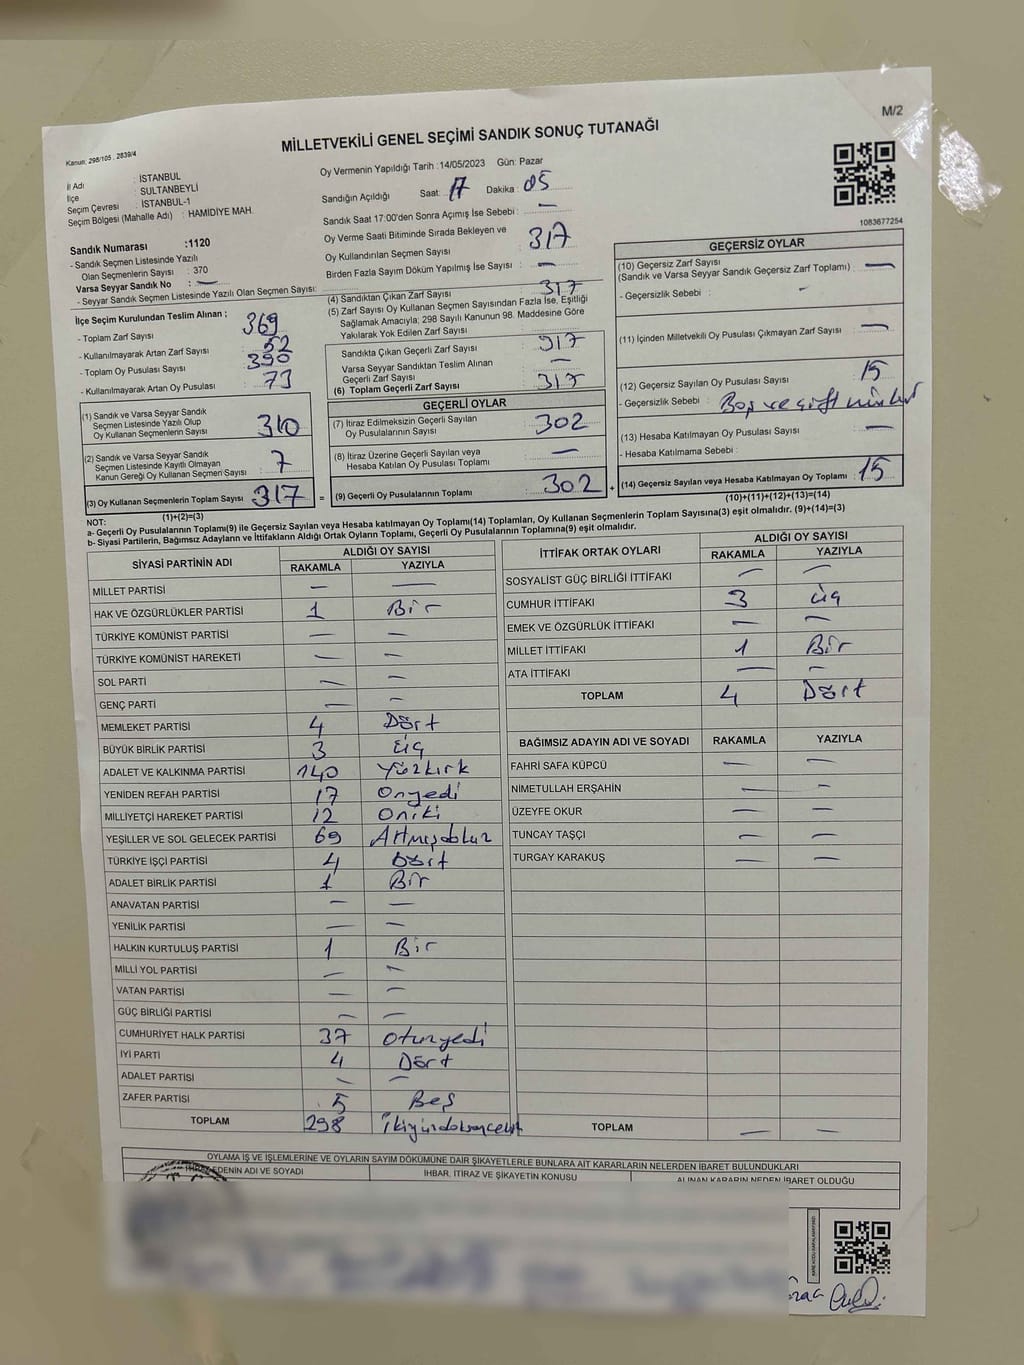 M/2
Kanun; 298/105 , 2839/4
MİLLETVEKİLİ GENEL SEÇİMİ SANDIK SONUÇ TUTANAĞI
İl Adı : İSTANBUL
İlçe : SULTANBEYLİ
Seçim Çevresi : İSTANBUL-1
Seçim Bölgesi (Mahalle Adı) : HAMİDİYE MAH.
Sandık Numarası :1120
- Sandık Seçmen Listesinde Yazılı
Olan Seçmenlerin Sayısı : 370
Varsa Seyyar Sandık No : —
- Seyyar Sandık Seçmen Listesinde Yazılı Olan Seçmen Sayısı:
Oy Vermenin Yapıldığı Tarih :14/05/2023 Gün: Pazar
Sandığın Açıldığı Saat: 17 Dakika : 05
Sandık Saat 17:00'den Sonra Açımış İse Sebebi : —
Oy Verme Saati Bitiminde Sırada Bekleyen ve
Oy Kullandırılan Seçmen Sayısı : 317
Birden Fazla Sayım Döküm Yapılmış İse Sayısı : —
1083677254
İlçe Seçim Kurulundan Teslim Alınan :
- Toplam Zarf Sayısı : 369
- Kullanılmayarak Artan Zarf Sayısı : 52
- Toplam Oy Pusulası Sayısı : 390
- Kullanılmayarak Artan Oy Pusulası : 73
(1) Sandık ve Varsa Seyyar Sandık
Seçmen Listesinde Yazılı Olup
Oy Kullanan Seçmenlerin Sayısı : 310
(2) Sandık ve Varsa Seyyar Sandık
Seçmen Listesinde Kayıtlı Olmayan
Kanun Gereği Oy Kullanan Seçmen Sayısı : 7
(3) Oy Kullanan Seçmenlerin Toplam Sayısı : 317
(1)+(2)=(3)
(4) Sandıktan Çıkan Zarf Sayısı : 317
(5) Zarf Sayısı Oy Kullanan Seçmen Sayısından Fazla İse, Eşitliği
Sağlamak Amacıyla; 298 Sayılı Kanunun 98. Maddesine Göre
Yakılarak Yok Edilen Zarf Sayısı :
Sandıkta Çıkan Geçerli Zarf Sayısı : 317
Varsa Seyyar Sandıktan Teslim Alınan
Geçerli Zarf Sayısı : —
(6) Toplam Geçerli Zarf Sayısı : 317
GEÇERLİ OYLAR
(7) İtiraz Edilmeksizin Geçerli Sayılan
Oy Pusulalarının Sayısı : 302
(8) İtiraz Üzerine Geçerli Sayılan veya
Hesaba Katılan Oy Pusulası Toplamı : —
= (9) Geçerli Oy Pusulalarının Toplamı : 302 +
GEÇERSİZ OYLAR
(10) Geçersiz Zarf Sayısı
(Sandık ve Varsa Seyyar Sandık Geçersiz Zarf Toplamı) : —
- Geçersizlik Sebebi : -
(11) İçinden Milletvekili Oy Pusulası Çıkmayan Zarf Sayısı : —
(12) Geçersiz Sayılan Oy Pusulası Sayısı : 15
- Geçersizlik Sebebi : Boş ve çift mühür
(13) Hesaba Katılmayan Oy Pusulası Sayısı : —
- Hesaba Katılmama Sebebi :
(14) Geçersiz Sayılan veya Hesaba Katılmayan Oy Toplamı : 15
(10)+(11)+(12)+(13)=(14)
NOT:
a- Geçerli Oy Pusulalarının Toplamı(9) ile Geçersiz Sayılan veya Hesaba Katılmayan Oy Toplamı(14) Toplamları, Oy Kullanan Seçmenlerin Toplam Sayısına(3) eşit olmalıdır. (9)+(14)=(3)
b- Siyasi Partilerin, Bağımsız Adayların ve İttifakların Aldığı Ortak Oyların Toplamı, Geçerli Oy Pusulalarının Toplamına(9) eşit olmalıdır.
SİYASİ PARTİNİN ADI ALDIĞI OY SAYISI
RAKAMLA YAZIYLA
MİLLET PARTİSİ — —
HAK VE ÖZGÜRLÜKLER PARTİSİ 1 Bir
TÜRKİYE KOMÜNİST PARTİSİ — —
TÜRKİYE KOMÜNİST HAREKETİ — —
SOL PARTİ — —
GENÇ PARTİ — —
MEMLEKET PARTİSİ 4 Dört
BÜYÜK BİRLİK PARTİSİ 3 üç
ADALET VE KALKINMA PARTİSİ 140 Yüzkırk
YENİDEN REFAH PARTİSİ 17 Onyedi
MİLLİYETÇİ HAREKET PARTİSİ 12 Oniki
YEŞİLLER VE SOL GELECEK PARTİSİ 69 Altmışdokuz
TÜRKİYE İŞÇİ PARTİSİ 4 Dört
ADALET BİRLİK PARTİSİ 1 Bir
ANAVATAN PARTİSİ — —
YENİLİK PARTİSİ — —
HALKIN KURTULUŞ PARTİSİ 1 Bir
MİLLİ YOL PARTİSİ — —
VATAN PARTİSİ — —
GÜÇ BİRLİĞİ PARTİSİ — —
CUMHURİYET HALK PARTİSİ 37 Otuzyedi
İYİ PARTİ 4 Dört
ADALET PARTİSİ — —
ZAFER PARTİSİ 5 Beş
TOPLAM 298 İkiyüzdoksansekiz
İTTİFAK ORTAK OYLARI ALDIĞI OY SAYISI
RAKAMLA YAZIYLA
SOSYALİST GÜÇ BİRLİĞİ İTTİFAKI — —
CUMHUR İTTİFAKI 3 üç
EMEK VE ÖZGÜRLÜK İTTİFAKI — —
MİLLET İTTİFAKI 1 Bir
ATA İTTİFAKI — —
TOPLAM 4 Dört
BAĞIMSIZ ADAYIN ADI VE SOYADI RAKAMLA YAZIYLA
FAHRİ SAFA KÜPCÜ — —
NİMETULLAH ERŞAHİN — —
ÜZEYFE OKUR — —
TUNCAY TAŞÇI — —
TURGAY KARAKUŞ — —
TOPLAM — —
OYLAMA İŞ VE İŞLEMLERİNE VE OYLARIN SAYIM DÖKÜMÜNE DAİR ŞİKAYETLERLE BUNLARA AİT KARARLARIN NELERDEN İBARET BULUNDUKLARI
EDENİN ADI VE SOYADI İHBAR, İTİRAZ VE ŞİKAYETİN KONUSU ALINAN KARARIN NEDEN İBARET OLDUĞU